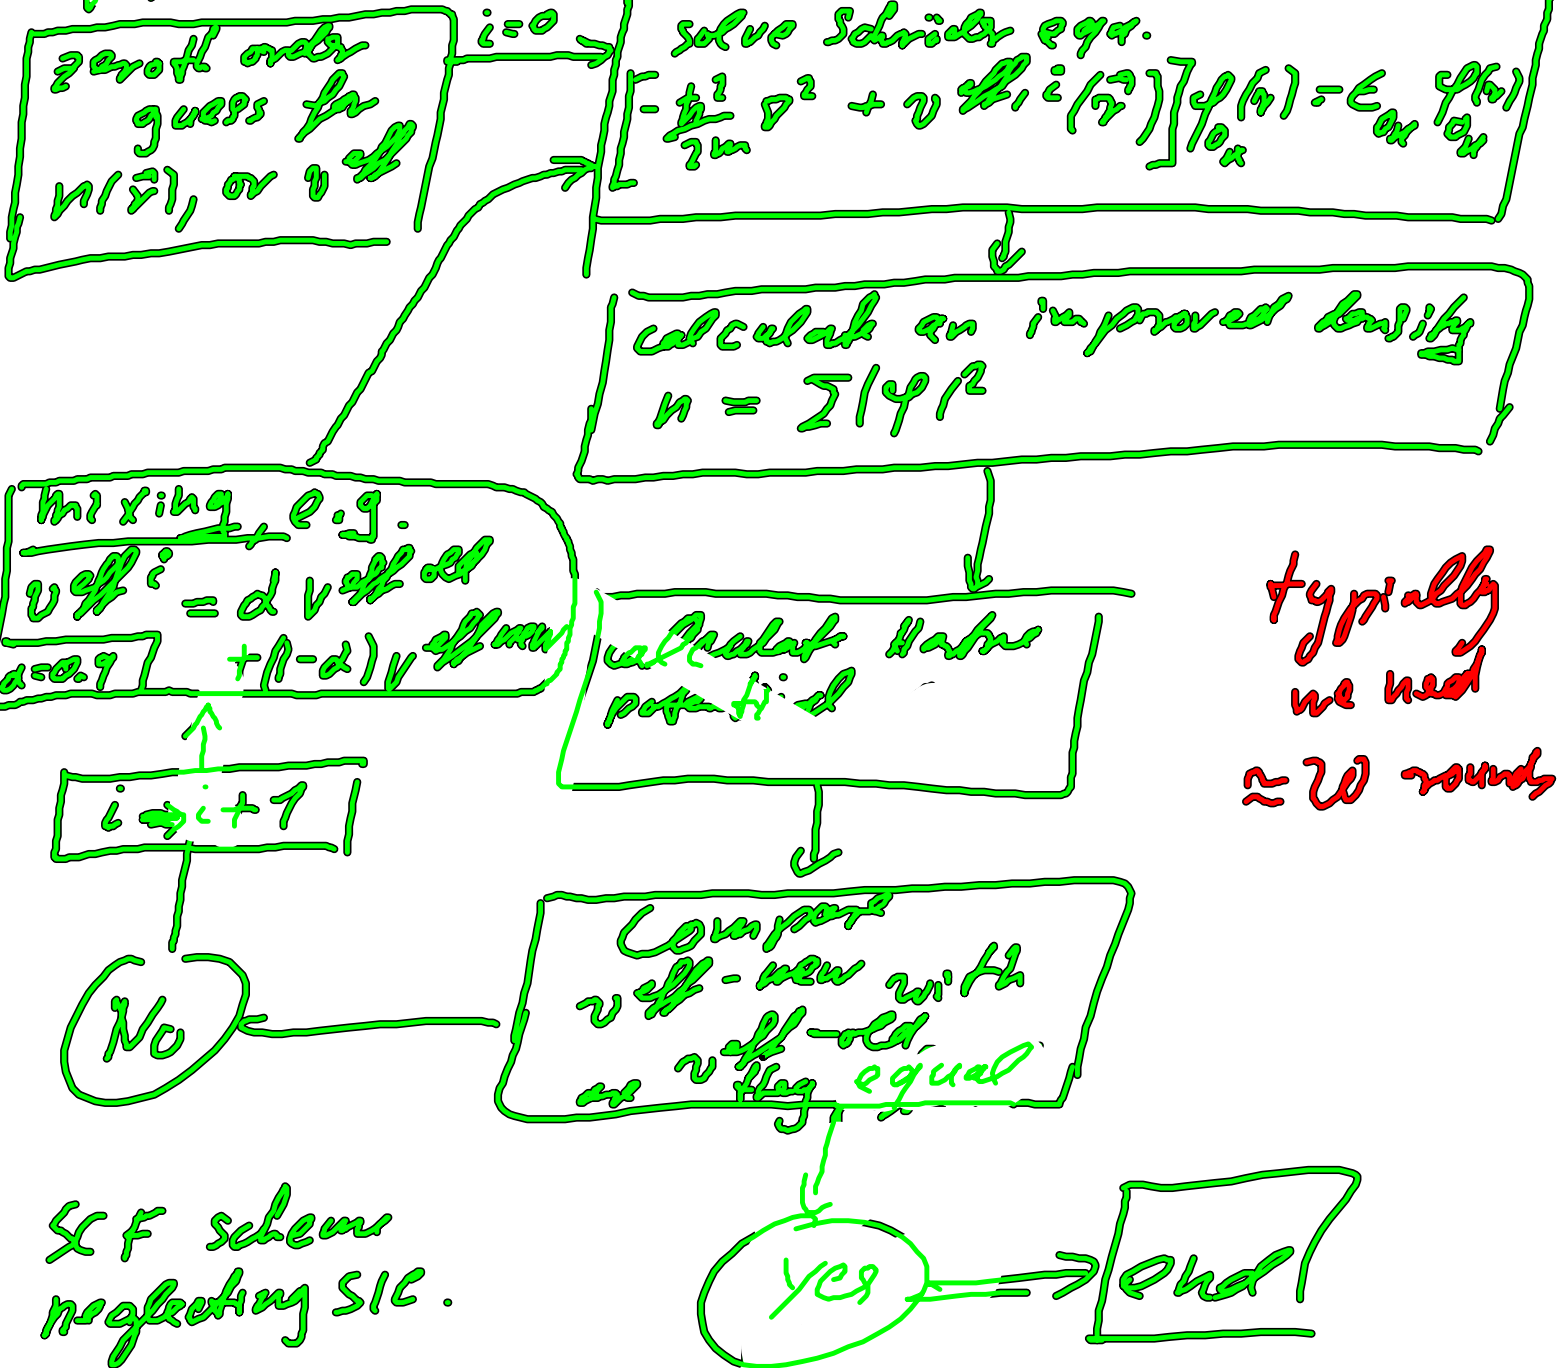 zeroth order
guess for
n(r⃗), or v^eff
i=0
solve Schröder eqn.
[-ħ²/2m ∇² + v^eff,i(r⃗)] φ_oα(r) = ϵ_oα φ_oα(r)
calculate an improved density
n = Σ|φ|²
mixing, e.g.
v^eff i = α v^eff old
α=0.9 +(1-α) v^eff new
calculate Hartree
potential
typically
we need
≈ 20 rounds
i → i + 1
Compare
v^eff-new with
v^eff-old
are they equal
No
Yes
end
SCF scheme
neglecting SIC.